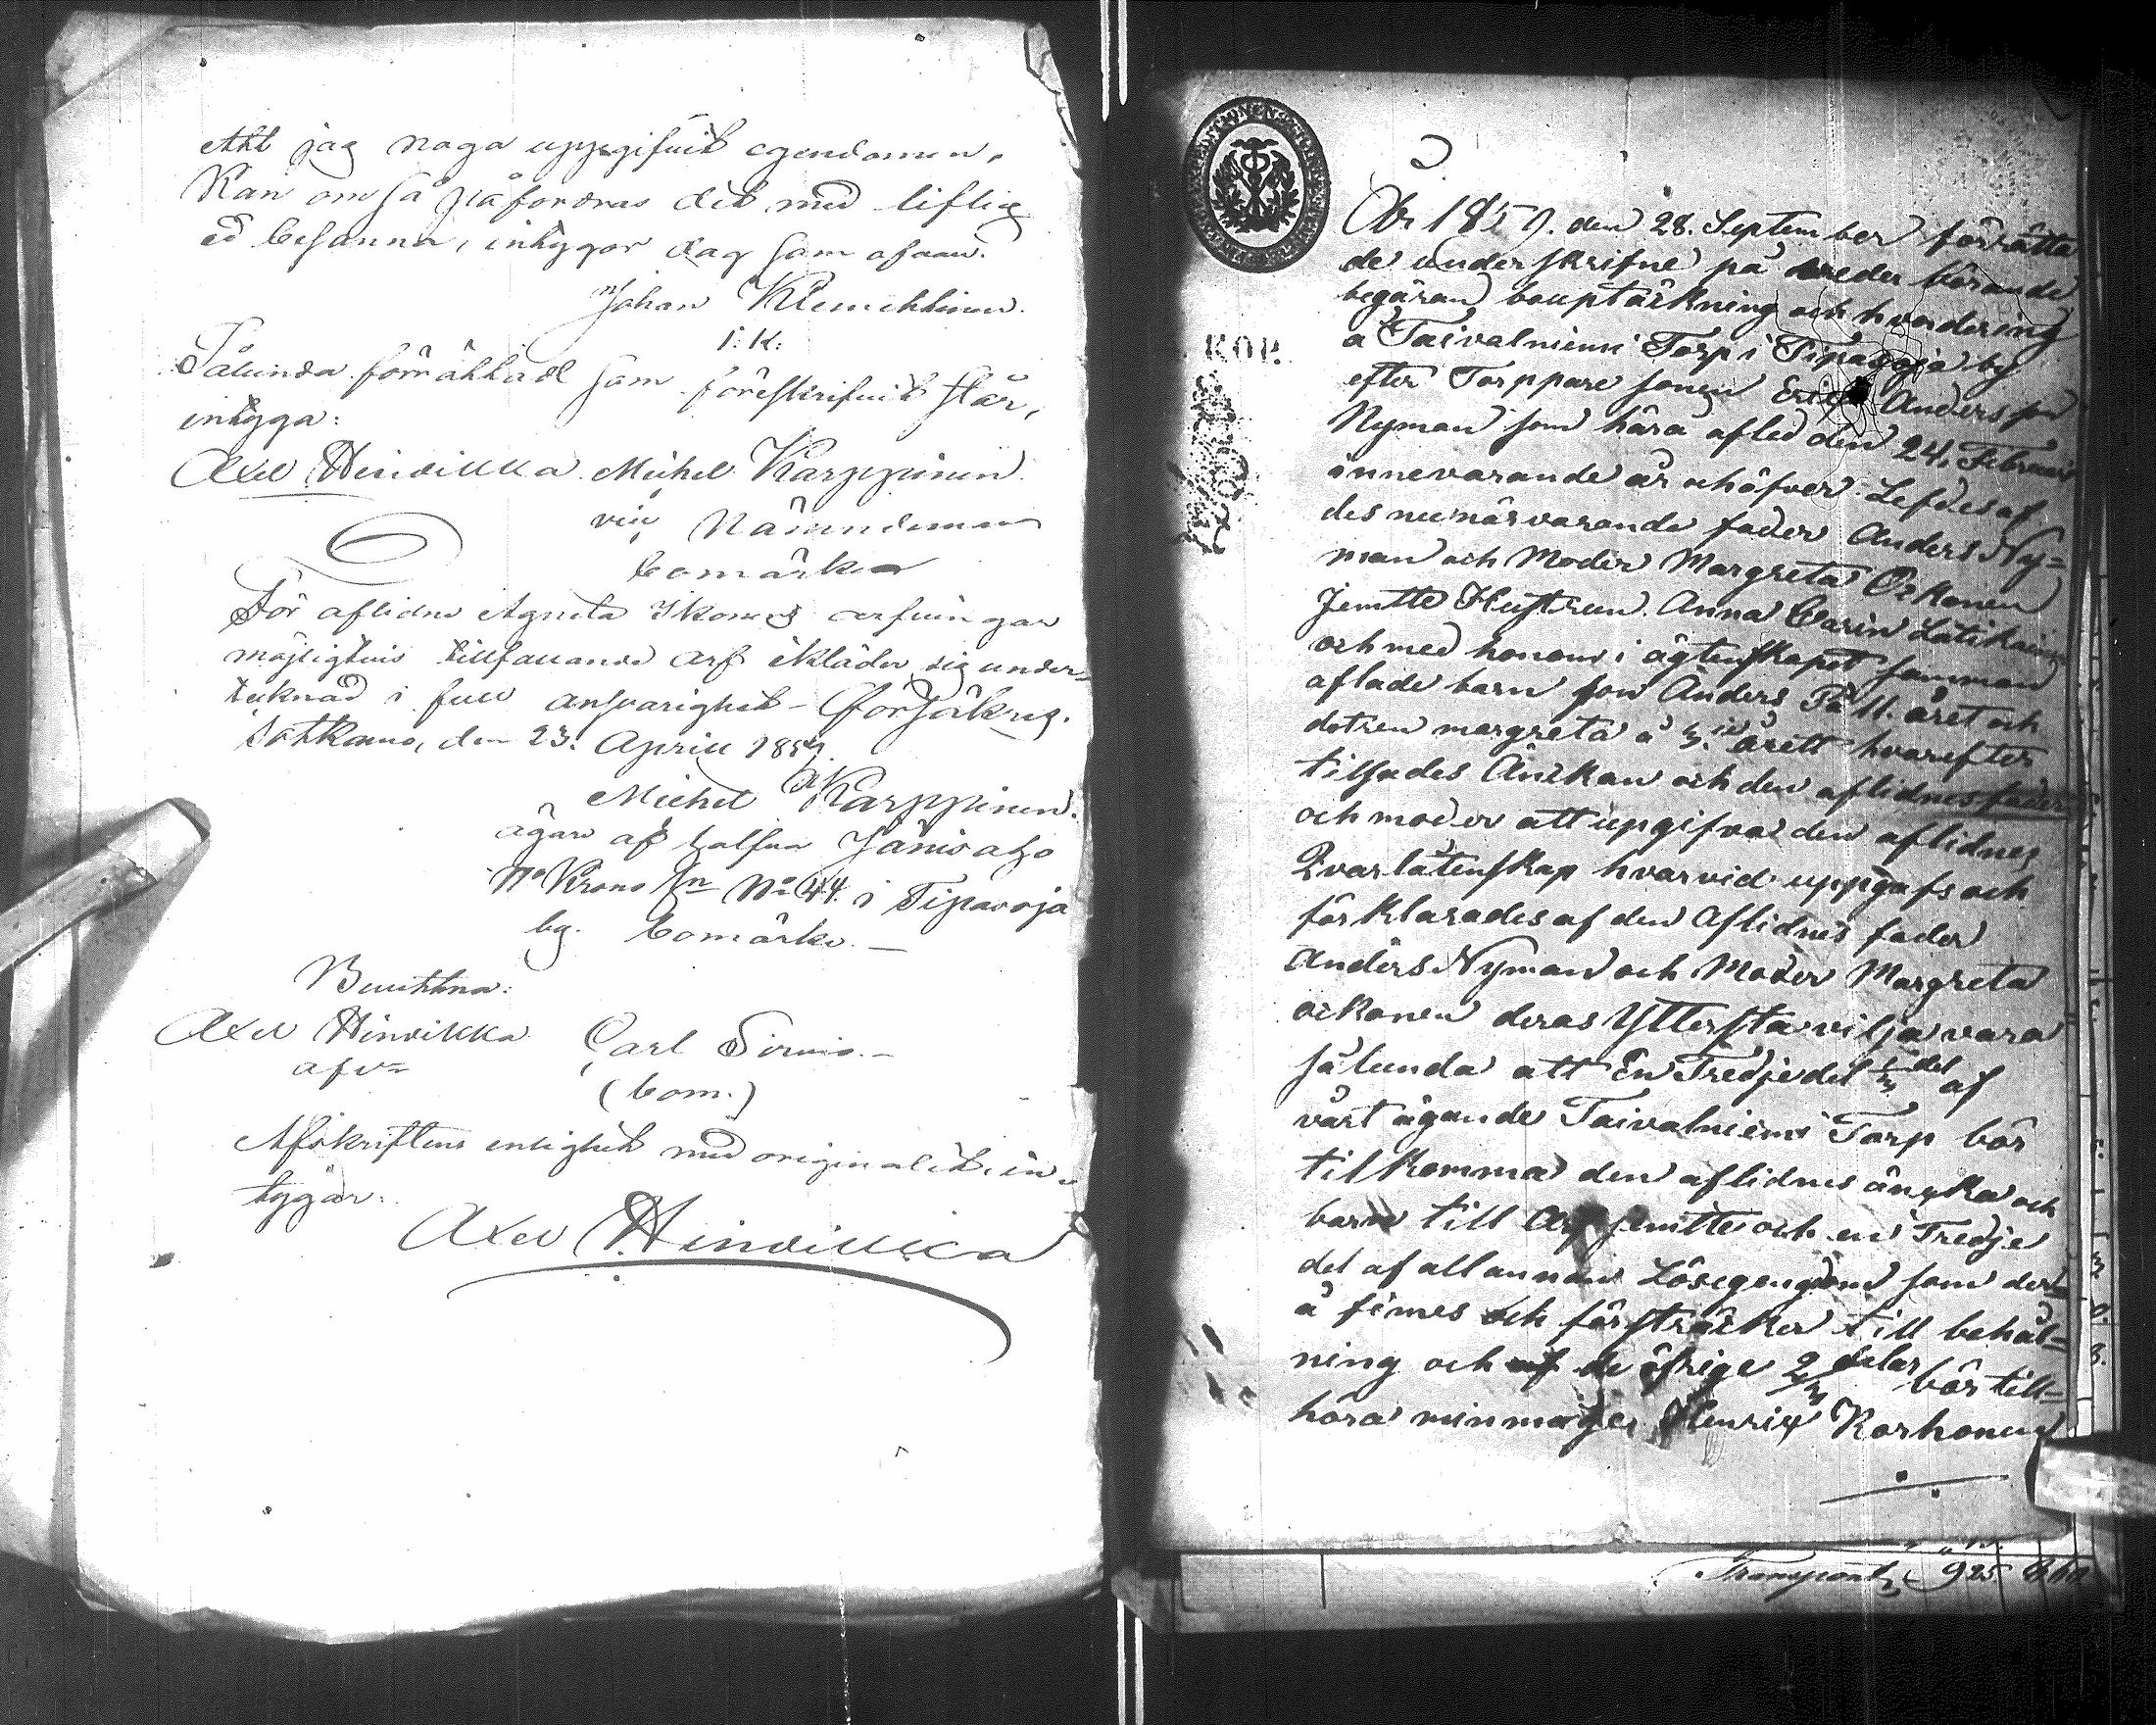 Att jag noga uppgifvit egendomen,
Kan om så påfordras det med liflig
ed besanna, intygar dag som ofvan.
Johan Klemettinen.
i: K:
Sålunda förrättadt som föreskrifvit står,
intyga:
Axel Hindikka. Michel Karppinen
Nämndeman
bomärke
För aflidne Agneta Ikonens arfvingar
möjligtvis tillfallande arf ikläder sig under-
tecknad i full ansvarighet - försäkrig.
Sotkamo, den 23. April 1859.
Michel Karppinen.
ägare af halfva Jänisaho
Krono N° 44. i Tipasoja
by. bomärke. —
Bevittna:
Axel Hindikka Carl Sirviö. —
(bom.)
Afskriftens enlighet med originalet, in-
tygar:
Axel Hindikka
KOP.
År 1859. den 28. September förrätta
de underskrifne på vederbörande
begäran bouptäckning och hvardering
å Taivalniemi Torp i Tipasoja by
efter Torppare sonen Eric Andersson
Nyman som härå afled den 24. Februari
innevarande år och öfver Lefdes af
des nu närvarande fader Anders Ny=
man och Moder Margreta Ockonen
Jemtte Hustrun Anna Carin Latikainen
och med honom i ägtenskapet samman
aflade barn son Anders På 11. året och
dotren margreta å årett hvarefter
tilsades Änckan och den aflidnes fader
och moder att upgifva den aflidnes
Qvarlåtenskap hvarvid uppgafs och
förklarades af den Aflidnes fader
Anders Nyman och Moder Margreta
ockonen deras Yttersta vilja vara
sålunda att En Tredjedel 1/3 del af
vårt ägande Taivalniemi Torp bör
tilkomma den aflidnes änka och
barn till Arf jemtte och en Tredje
del af all annan Lösegendom som der=
å finnes och försträcker till behål=
ning och af de öfrige 2/3 delar bör till=
höra min måge Henrix Korhonen
Transport 925